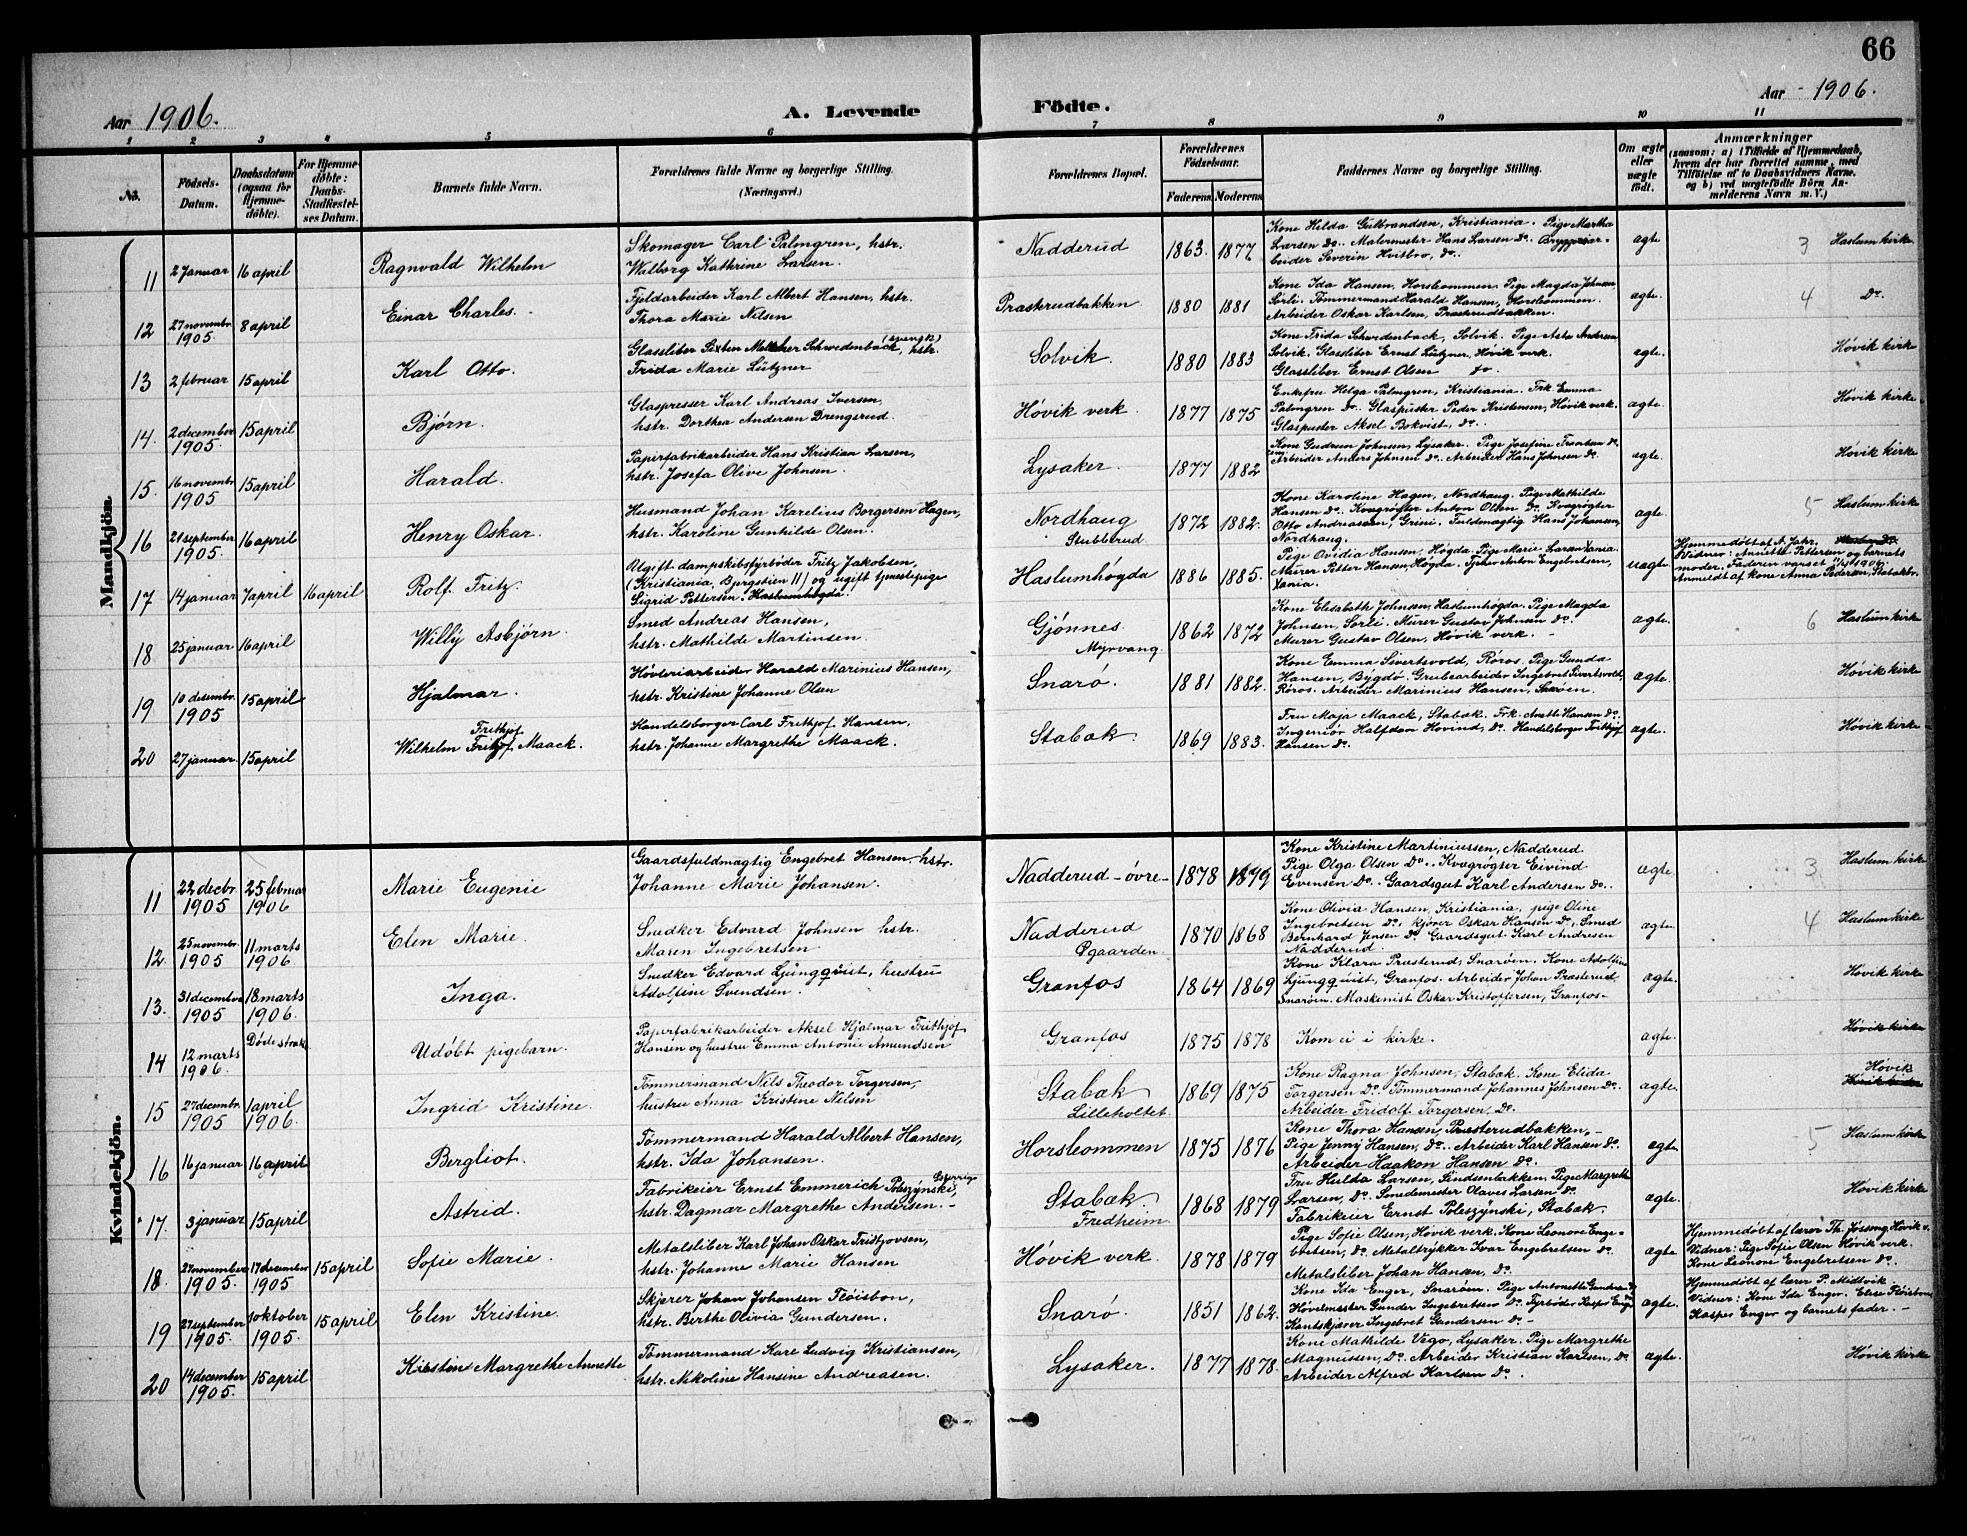 66
Aar 1906.
A. Levende Födte.
Aar 1906.
1 2 3 4 5 6 7 8 9 10 11
No.
Födsels-
Datum.
Daabsdatum
(ogsaa for
Hjemme-
døbte).
For Hjemme-
døbte:
Daabs-
Stadfæstel-
ses Datum.
Barnets fulde Navn.
Forældrenes fulde Navne og borgerlige Stilling.
(Næringsvei.)
Forældrenes Bopæl.
Forældrenes
Fødselsaar.
Faderens. Moderens.
Faddernes Navne og borgerlige Stilling.
Om ægte
eller
uægte
födt.
Anmærkninger
(saasom: a) i Tilfælde af Hjemmedaab,
hvem der har forrettet samme, med
Tilföielse af to Daabsvidners Navne,
og b) ved uægtefödte Börn An-
melderens Navn m. V.)
Mandkjön
11 2 januar 16 april Ragnvald Wilhelm
Skomager Carl Palmgren, hstr.
Walborg Kathrine Larsen.
Nadderud 1863. 1877
Kone Hilda Gulbrandsen, Kristiania. Pige Martha
Larsen do. Malermester Hans Larsen do. Bryggeriar-
beider Severin Hvitbro, do.
ægte 3 Haslum kirke
12 27 novembr. 1905 8 april Einar Charles.
Fjeldarbeider Karl Albert Hansen, hstr.
Thora Marie Nilsen
Præsterudbakken 1880 1881
Kone Ida Hansen, Horsleommen. Pige Magda Johnsen
Sørli. Tømmermand Harald Hansen, Horsleommen.
Arbeider Oskar Karlsen, Præsterudbakken.
ægte. 4 Do.
13 2 februar 15 april Karl Otto.
Glassliber Sixten Melcher Schwedenback, (svensk) hstr.
Frida Marie Lützner
Solvik. 1880 1883
Kone Frida Schwedenback, Solvik. Pige Asta Andersen
Solvik. Glassliber Ernst Lützner, Høvik verk.
Glassliber Ernst Olsen do.
ægte. Høvik kirke
14. 2 december 1905 15 april Bjørn.
Glaspresser Karl Andreas Iversen,
hstr. Dorthea Andersen Drengsrud.
Høvik verk. 1877 1875
Enkefru Helga Palmgren, Kristiania. Frk. Emma
Palmgren do. Glaspuster Peder Kristensen, Høvik verk.
Glaspuster Aksel Bokvist, do.
ægte. Høvik kirke
15. 16 novembr. 1905 15 april Harald.
Papirfabrikarbeider Hans Kristian Larsen,
hstr. Josefa Olive Johnsen.
Lysaker. 1877 1882
Kone Gudrun Johnsen, Lysaker. Pige Josefine Frantsen do.
Arbeider Anders Johnsen do. Arbeider Hans Johnsen do.
ægte. Høvik kirke
16 21 september 1905 16 april Henry Oskar.
Husmand Johan Karelius Borgersen Hagen,
hstr. Karoline Gunhilde Olsen.
Nordhaug
Stubberud
1872 1882.
Kone Karoline Hagen, Nordhaug. Pige Mathilde
Hansen do. Kvægrøgter Anton Olsen do. Svegrøgter
Otto Andreassen, Grini. Fuldmægtig Hans Johansen,
Nordhaug.
ægte. 5 Haslum kirke
17 14 januar 7 april 16 april Rolf Fritz.
Ugift dampskibsfyrbøder Fritz Jakobsen,
(Kristiania, Bergstien 11) og ugift tjenestepige
Sigrid Pettersen. Haslumhøgda.
Haslumhøgda 1886 1885.
Pige Ovidia Hansen, Høgda. Pige Marie Larsen Xania.
Murer Petter Hansen, Høgda. Tysker Anton Engebretsen,
Xania.
uægte
Hjemmedøbt af A. Jahr.
Vidner: Annette Pettersen og barnets
moder. Faderen varslet 11/4 1906.
Anmeldt af kone Anna Pedersen, Stabækbr.
18 25 januar 16 april Willy Asbjørn.
Smed Andreas Hansen,
hstr. Mathilde Martinsen.
Gjønnes.
Myrvang.
1862 1872
Kone Elisabeth Johnsen, Haslumhøgda. Pige Magda
Johnsen, Sørli. Murer Gustav Johnsen do.
Murer Gustav Olsen, Høvik verk.
ægte. 6 Haslum kirke
19 10 desembr. 1905 15 april Hjalmar.
Høvleriarbeider Harald Marinius Hansen,
hstr. Kristine Johanne Olsen
Snarø. 1881 1882.
Kone Emma Sivertsvold, Røros. Pige Gunda
Hansen, Bygdø. Grubearbeider Ingebret Sivertsvold,
Røros. Arbeider Marinius Hansen, Snarøen.
ægte. Høvik kirke
20 27 januar. 15 april Wilhelm Fritjof Frithjof Maack.
Handelsborger Carl Frithjof Hansen,
hstr. Johanne Margrethe Maack.
Stabæk. 1869 1883.
Fru Maja Maack, Stabæk. Frk. Anette Hansen do.
Ingeniør Halfdan Hovind, do. Handelsborger Frithjof
Hansen do.
ægte. Høvik kirke
Kvindekjön.
11 22 decbr. 1905 25 februar 1906 Marie Eugenie
Gaardsfuldmægtig Engebret Hansen, hstr.
Johanne Marie Johansen.
Nadderud - øvre- 1878 1879
Kone Kristine Martiniussen, Nadderud
Pige Olga Olsen do. Kvægrøgter Eivind
Evensen do. Gaardsgut Karl Andersen do.
ægte 3 Haslum kirke
12. 25 novembr. 1905 11 marts 1906 Elen Marie.
Snedker Edvard Johnsen hstr.
Maren Ingebretsen
Nadderud
Pgaarden.
1870 1868
Kone Olivia Hansen, Kristiania, pige Oline
Ingebretsen do, kjører Oskar Hansen do, Smed
Bernhard Jensen do. Gaardsgut Karl Andresen
Nadderud.
ægte. 4 Haslum kirke
13. 31 decembr 1905 18 marts 1906. Inga.
Snedker Edvard Ljungqquist, hustru
Adolfine Svendsen.
Granfos 1864 1869
Kone Klara Præsterud, Snarøen. Kone Adolfine
Ljungqquist, Granfos. Arbeider Johan Præsterud
Snarøen. Maskenist Oskar Kristoffersen, Granfos-
ægte. Høvik kirke
14 12 marts 1906 Døde straks Udøbt pigebarn.
Papirfabrikarbeider Aksel Hjalmar Frithjof
Hansen og hustru Emma Antonie Amundsen
Granfos 1875 1878 Kom ei i kirke. ægte. Høvik kirke
15 27 decembr. 1905 1 april 1906. Ingrid Kristine.
Tømmermand Nils Theodor Torgersen,
hustru Anna Kristine Nelsen
Stabæk
Lilleholtet
1869 1875
Kone Ragna Johnsen, Stabæk. Kone Elida
Torgersen do. Tømmermand Johannes Johnsen do.
Arbeider Fridolf Torgersen, do.
ægte. Høvik
Høvik kirke
16 16 januar 16 april Bergliot.
Tømmermand Harald Albert Hansen,
hstr. Ida Johansen.
Horsleommen 1875 1876
Kone Thora Hansen, Præsterudbakken,-
Pige Jenny Hansen, do. Arbeider Karl Hansen do.
Arbeider Haakon Hansen do.
ægte 5 Haslum kirke
17. 3 januar 15 april Astrid.
Fabrikeier Ernst Emmerich Poleszynski, Østerrige
hstr. Dagmar Margrethe Andersen.-
Stabæk
Fredheim.
1868 1879
Fru Hulda Larsen, Lindsenbakken. Pige Margrethe
Larsen, do. Smedemester Olaves Larsen do.
Fabrikeier Ernst Poleszynski, Stabæk.
ægte. Høvik kirke
18. 27 november 1905 17 december 1905 15 april Sofie Marie.
Metalsliber Karl Johan Oskar Fristjovsen,
hstr. Johanne Marie Hansen
Høvik verk. 1878 1879
Pige Sofie Olsen, Høvik verk. Kone Leonore Enge-
bretsen, do. Metaltrykker Ivar Engebretsen do.
Metalsliber Johan Hansen, do.
ægte
Hjemmedøbt af lærer Th. Jossang Høvik v.
Vidner: Pige Sofie Olsen Høvik verk.
Kone Leonore Engebretsen do.
19 27 september 1905. 1 oktober 1905. 15 april Elen Kristine.
Skjærer Johan Johansen Fløisbon,
hstr. Berthe Olivia Gundersen.
Snarø. 1851 1862.
Kone Ida Enger, Snarøen. Pige Antonette Gundersen do.
Høvlemester Gunder Ingebretsen do. Fyrbøder Kasper Enger do.
Kantskjærer Ingebret Gundersen do.-
ægte.
Hjemmedøbt af lærer P. Midtvik
Vidner: Kone Ida Enger. Elise Fløisbon
Kasper Enger og barnets fader.-
20 14 december 1905. 15 april Kirstine Margrethe Annette
Tømmermand Kare Ludvig Kristiansen,
hstr. Nikoline Hansine Andreasen.
Lysaker. 1877 1878.
Kone Mathilde Vego, Lysaker. Pige Margrethe
Magnussen, do. Arbeider Kristian Karlsen, do.
Arbeider Alfred Karlsen do.
ægte. Høvik kirke